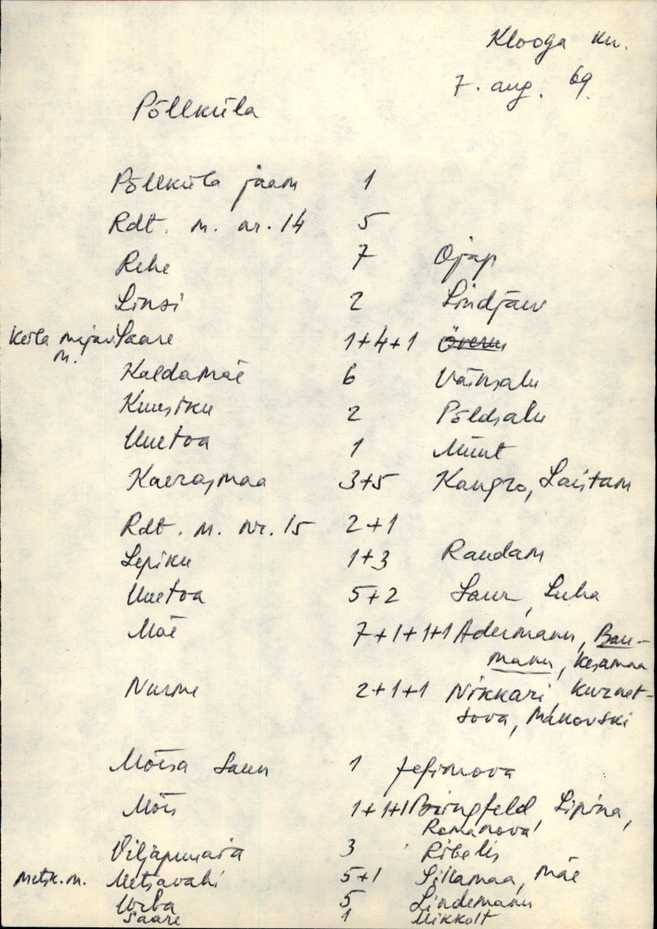 Klooga kn.
7. aug. 69.
Põllküla
Põllküla jaam 1
Rdt. m. nr. 14 5
Rehe 7 Ojap
Linsi 2 Lindjärv
Keila majand Saare 1+4+1
m.
Kaldamäe 6 Väinsalu
Kuusiku 2 Põldsalu
Uuetoa 1 Münt
Kaerasmaa 3+5 Kangro, Laistam
Rdt. m. nr. 15 2+1
Lepiku 1+3 Randam
Uuetoa 5+2 Saur, Luha
Mäe 7+1+1+1 Adermann, Bau-
mann, Kesamaa
Nurme 2+1+1 Nikkari Kuznet-
sova, Makovski
Mõisa Saun 1 Jefimova
Mõis 1+1+1 Birngfeld, Lipina,
Romanova
Viljapuuaia 3 Ribelis
Metsk. m. Metsavahi 5+1 Sillamaa, Mäe
Urba 5 Lindemann
Saare 1 Mikkolt